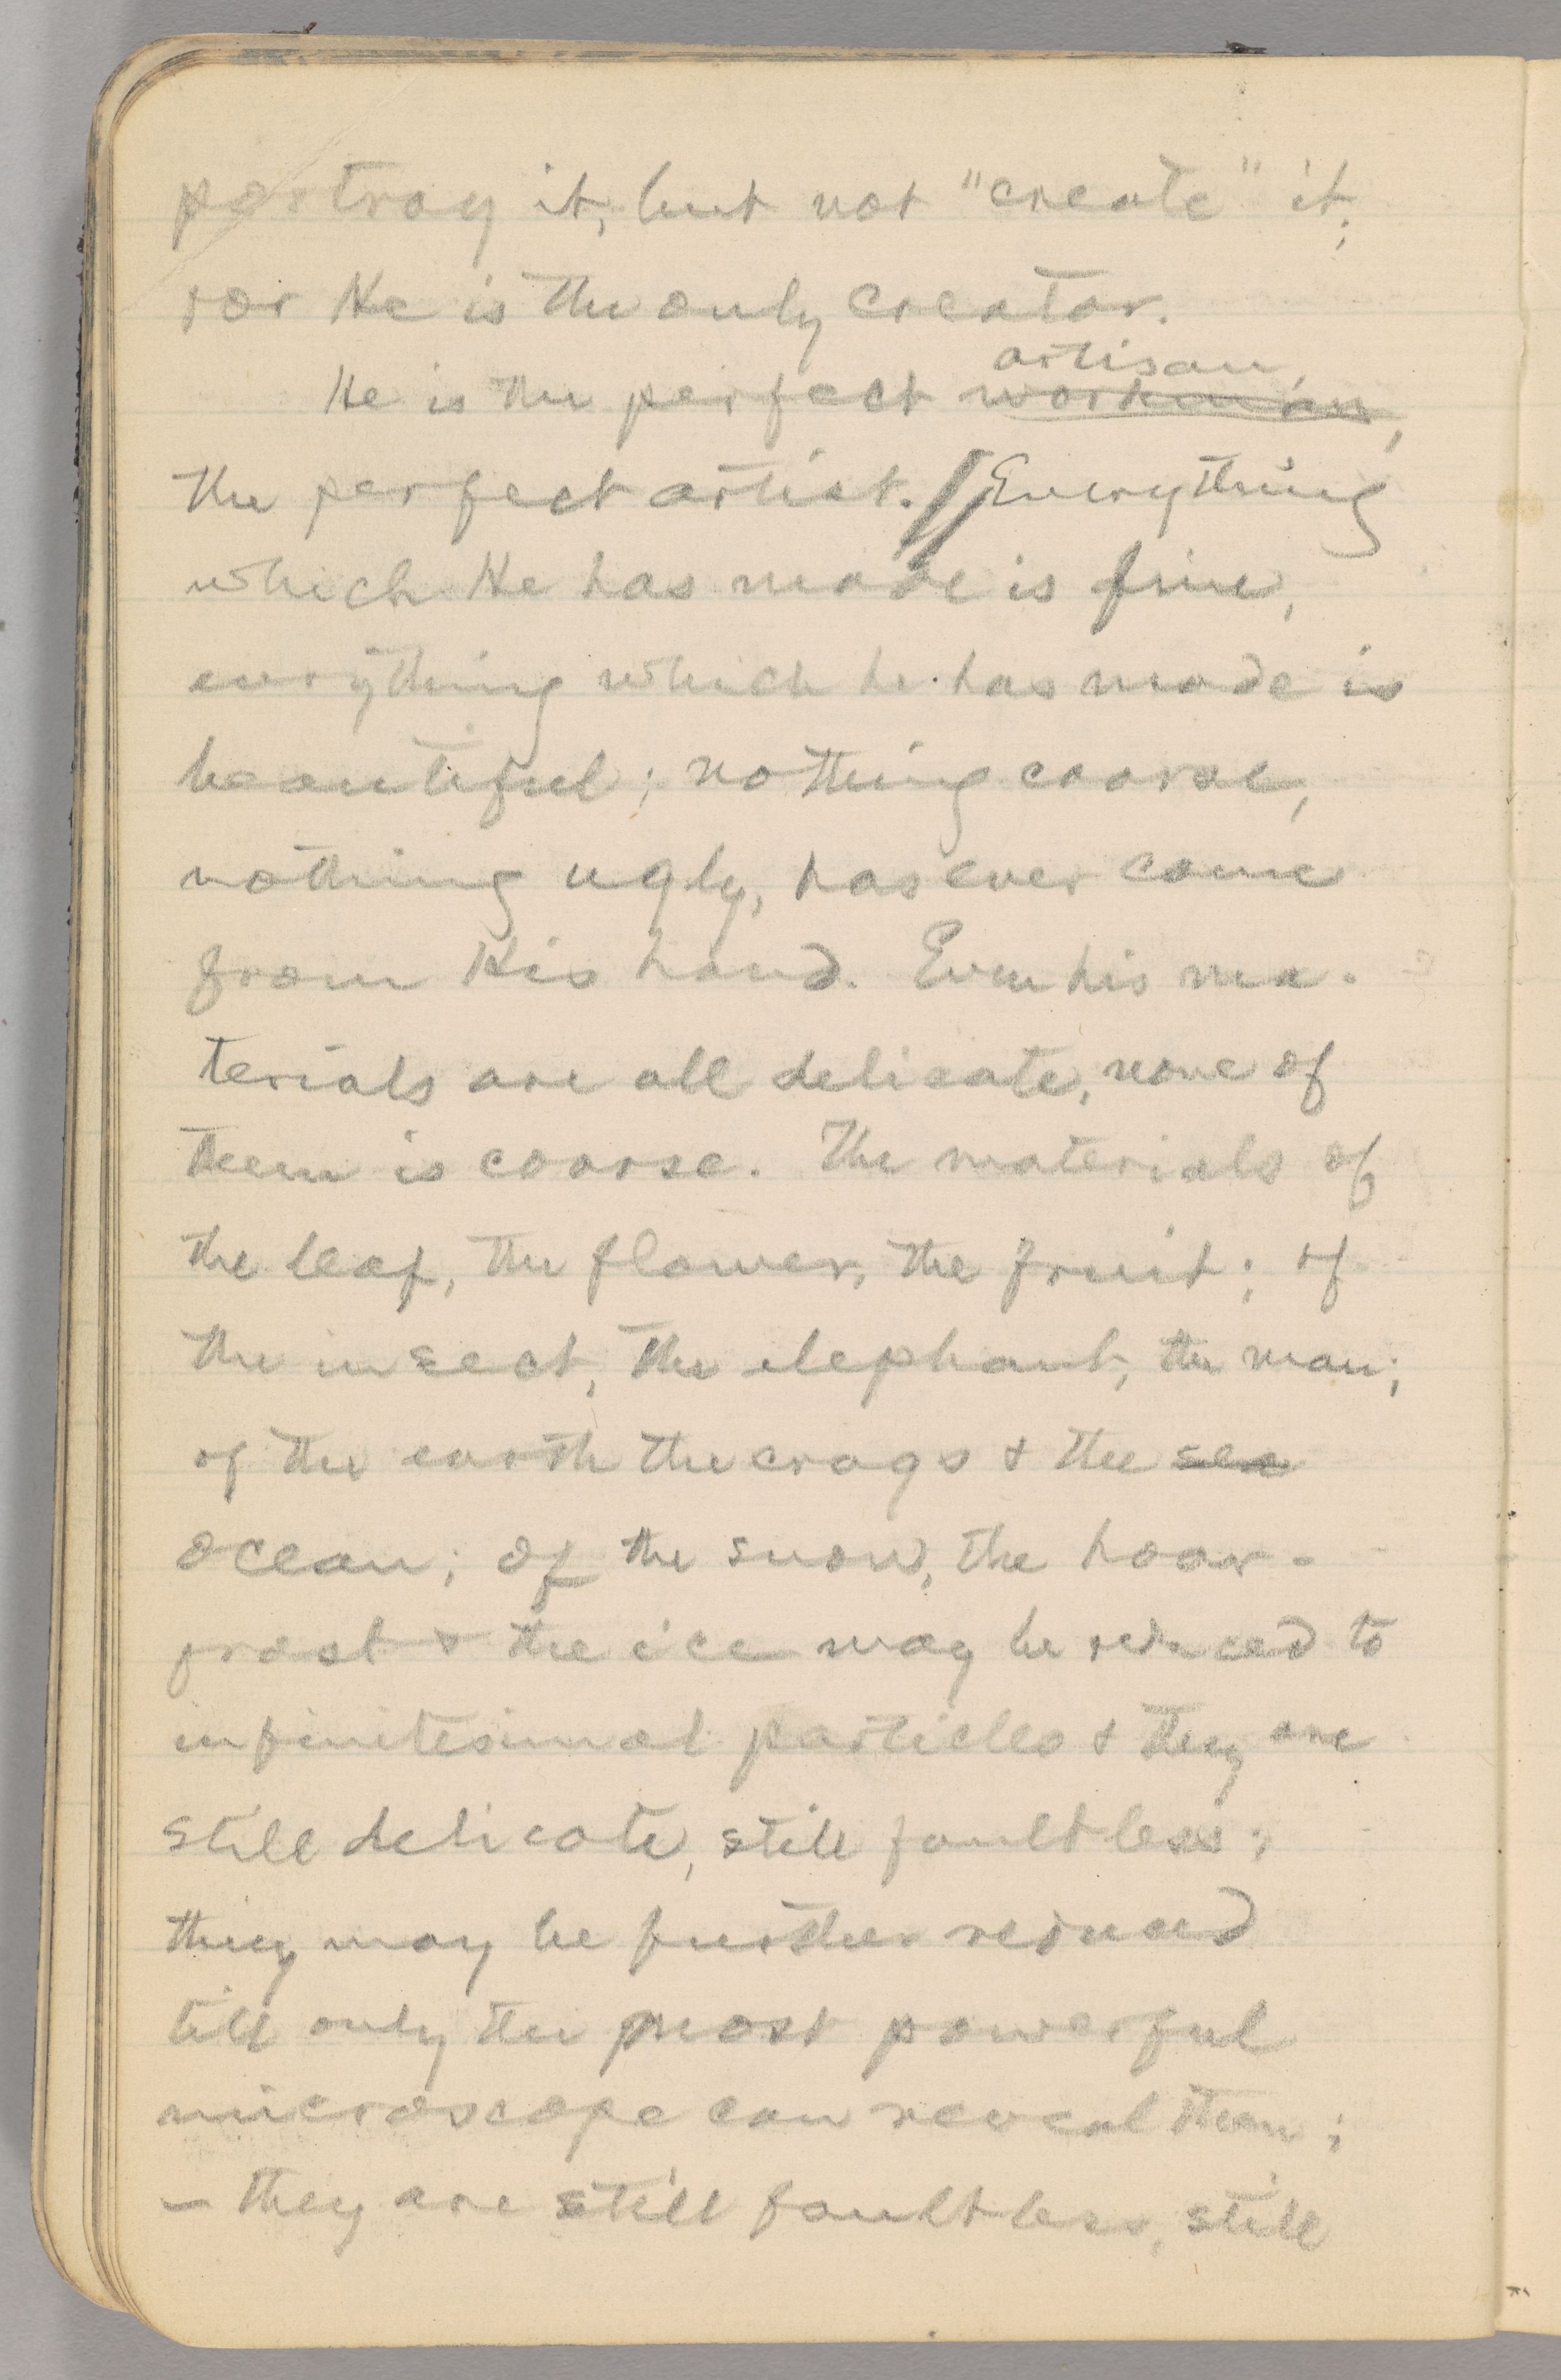 portray it, but not "create" it;
for He is the only creator.
artisan,
He is the perfect workman,
the perfect artist. // Everything
which He has made is fine,
everything which he has made is
beautiful; nothing coarse,
nothing ugly, has ever come
from His hand. Even his ma-
terials are all delicate, none of
them is coarse. The materials of
the leaf, the flower, the fruit; of
the insect, the elephant, the man;
of the earth the crags & the sea
ocean; of the snow, the hoar-
frost & the ice may be reduced to
infinitesimal particles & they are
still delicate, still faultless;
they may be further reduced
till only the most powerful
microscope can reveal them;
— they are still faultless, still